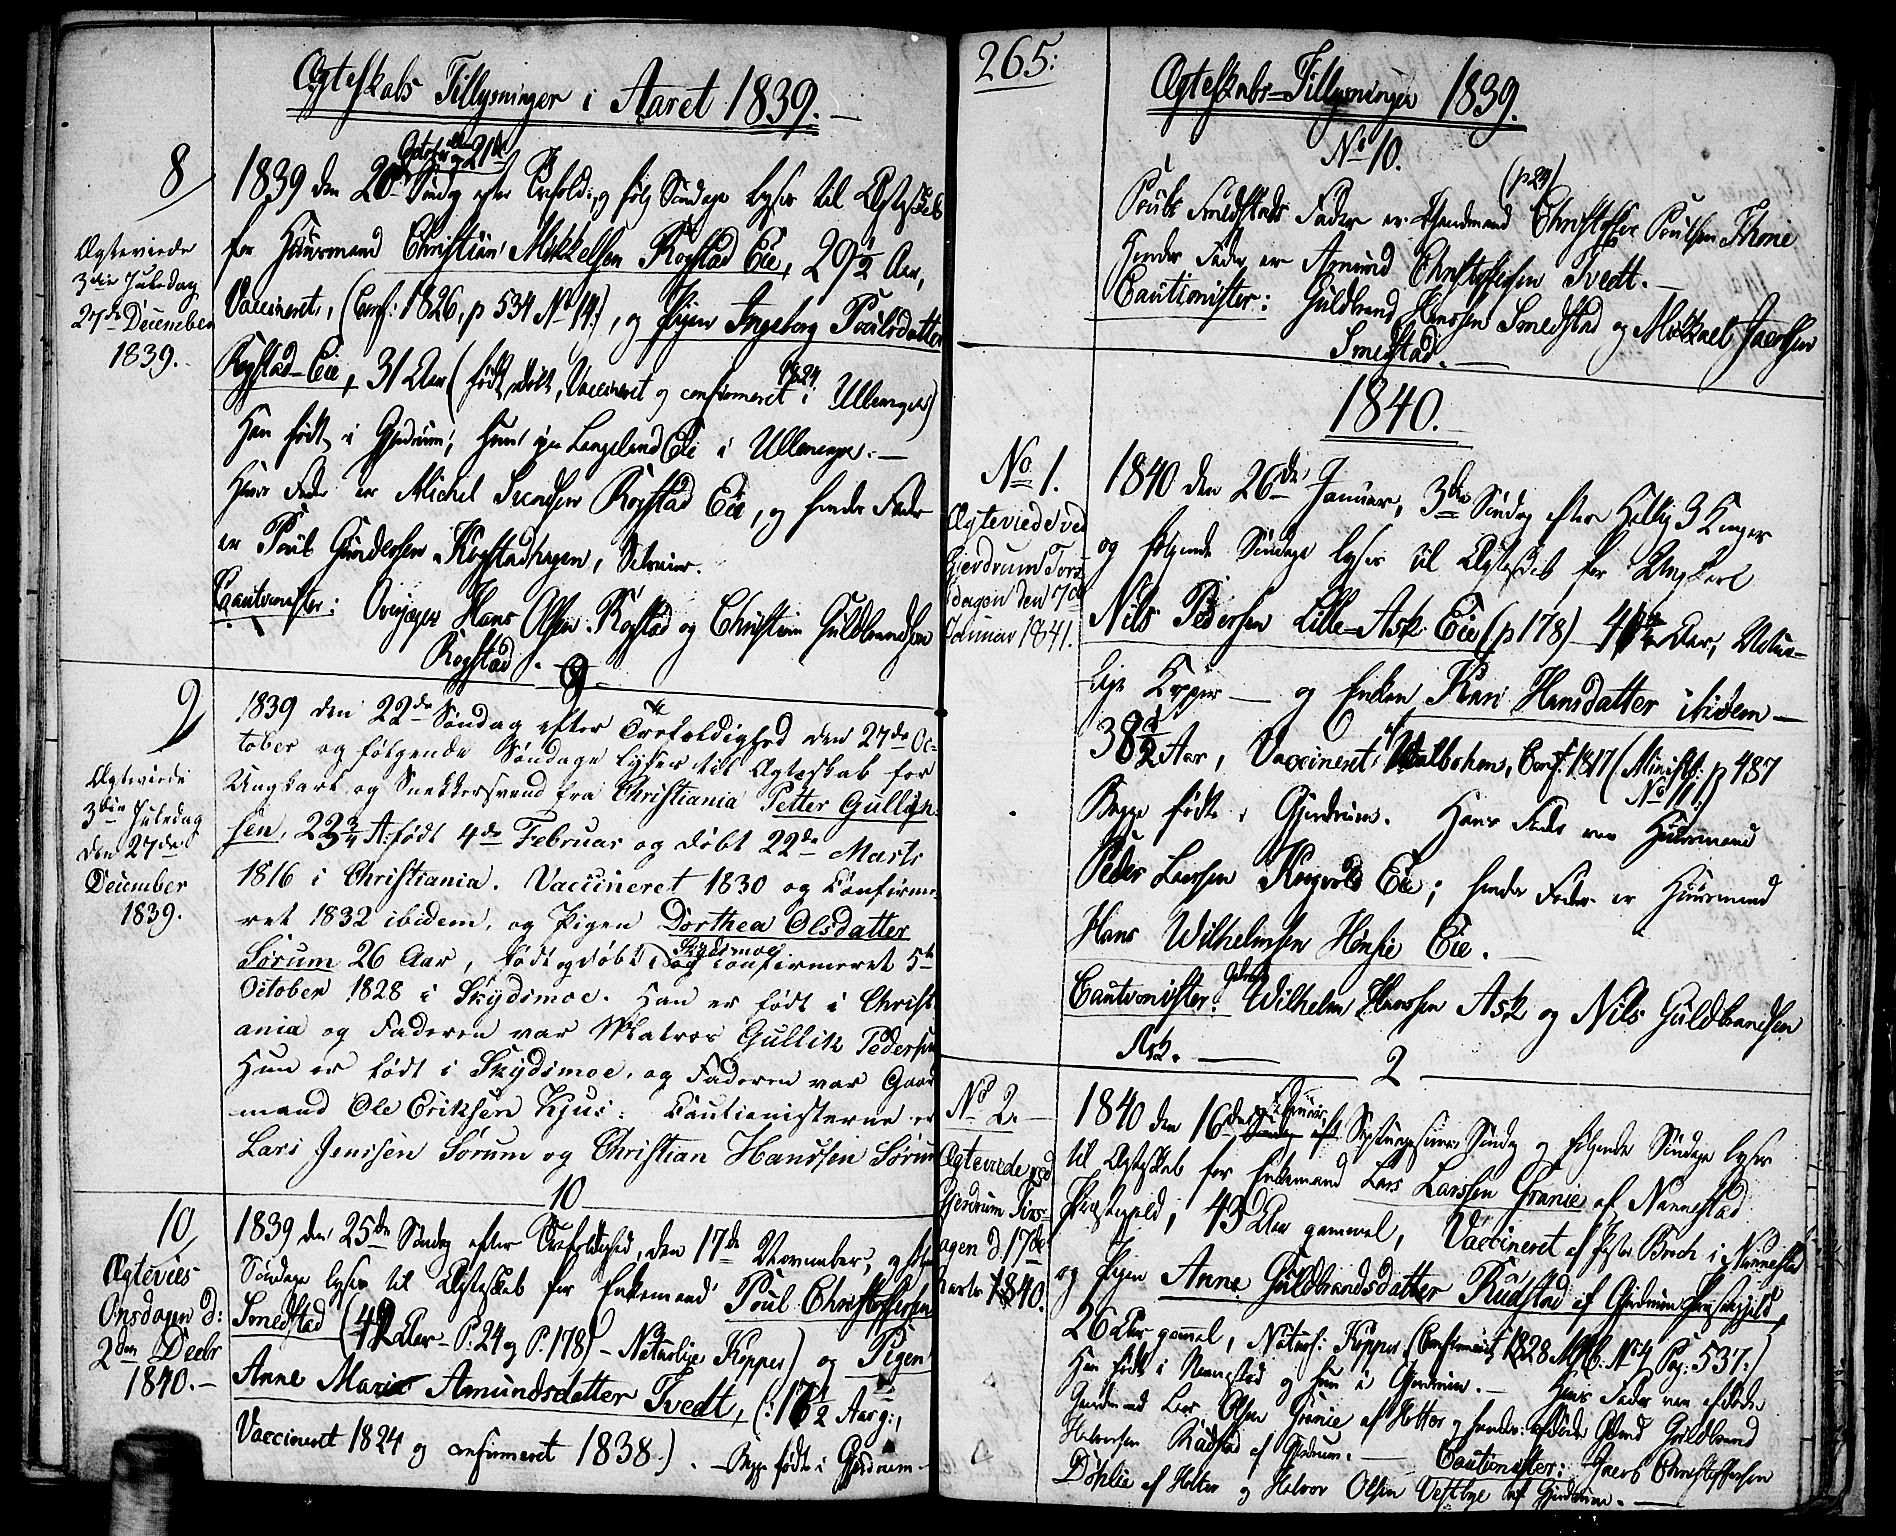 Ægteskabs Tillysninger i Aaret 1839.
8
Ægteviede
3die Juledag
27de December
1839.
October og 21de
1839 den 20de Søndag efter Trefold: og følg Søndage lyses til Ægteskab
for Huusmand Christian Mikkelsen Kogstad Eie, 29½ Aar,
Vaccineret, (Conf: 1826, p 534 No 14:), og Pigen Ingeborg Poulsdatter
Kogstad-Eie, 31 Aar (født, døbt, Vaccineret og confirmeret 1824 i Ullensager)
Han født i Gjerdrum, hun paa Langeland Eie i Ullensager. —
Hans Fader er Michel Svendsen Kogstad Eie, og hendes Fader
er Poul Gundersen Kogstadhagen,
Cautionister: Hans Olsen Kogstad og Christian Guldbrandsen
Kogstad.
9
9
Ægteviede
3die Juledag
den 27de
December
1839.
1839 den 22de Søndag efter Trefoldighed den 27de Oc-
tober og følgende Søndage lyses til Ægteskab for
Ungkarl og Snekkersvend fra Christiania Petter Gullich-
sen, 22¾ A: født 4de Februar og døbt 22de Marts
1816 i Christiania. Vaccineret 1830 og Confirme-
ret 1832 ibidem, og Pigen Dorthea Olsdatter
Sørum 26 Aar, født og døbt i Skydsmoe og confirmeret 5te
October 1828 i Skydsmoe. Han er født i Christi
ania og Faderen var Matros Gullik Pedersen
Hun er født i Skydsmoe, og Faderen var Gaard
mand Ole Eriksen Kjus: Cautionisterne er
Lars Jensen Sørum og Christian Hanssen Sørum
10
10
Ægtevies
Onsdagen d:
2den Decbr
1840. —
1839 den 25de Søndag efter Trefoldighed, den 17de November, og følgende
Søndage lyses til Ægteskab for Enkemand Poul Christoffersen
Smedstad (42 Aar - P. 24 og P. 178) - Naturlige Kopper) og Pigen
Anne Marie Amundsdatter Tvedt, (: 17½ Aar g:,
Vaccineret 1824 og confirmeret 1838.). — Begge født i Gjerdrum —
265:
Ægteskabs-Tillysninger 1839.
No 10.
(p 24)
Pouls Smedstads Fader er Christoffer Poulsen Thone
Hendes Fader er Amund Christoffersen Tvedt. —
Cautionister: Guldbrand Hanssen Smedstad og Mikkael
Smedstad. —
1840.
No 1.
Ægteviede ved
Gjerdrum Tors-
dagen den 7de
Januar 1841.
1840 den 26de Januar, 3die Søndag efter Hellig 3 Konger
og følgende Søndage lyses til Ægteskab for Ungkarl
Nils Pedersen Lille-Ask Eie (p 178) Aar, Natur-
lige Kopper — og Enken Kari Hansdatter ibidem —
38½ Aar, Vaccineret, Conf: 1817 (Ministb: p 487
No 11:)
Begge fødte i Gjerdrum. Hans Fader var Huusmand
Peder Larsen Eie; hendes Fader er Huusmand
Hans Wilhelmsen Hønsie Eie. —
Cautionister: Wilhelm Hanssen Ask og Nils Guldbrandsen
Ask. —
2
No 2. —
Ægteviede ved
Gjerdrum Tirs-
dagen d. 17de
Marts 1840.
1840 den 16de Februar Septuagesima Søndag og følgende Søndage lyses
til Ægteskab for Enkemand Lars Larssen Granie af Nannestad
Præstegjeld, 43 Aar gammel, Vaccineret af Brock i Nannestad
og Pigen Anne Guldbrandsdatter Rudstad af Gjerdrum Præstegjeld,
26 Aar gammel, Naturl: Kopper. (Confirmeret 1828 No 4 Pag: 537:)
Han født i Nannestad og hun i Gjerdrum. — Hans Fader var afdøde
Lars Olsen Granie af Holter og hendes: afdøde Guldbrand
Halvorsen Rudstad af Gjerdrum. — Cautionister: Christoffersen
Døhlie af Holter og Halvor Olsen Vestbye af Gjerdrum. —